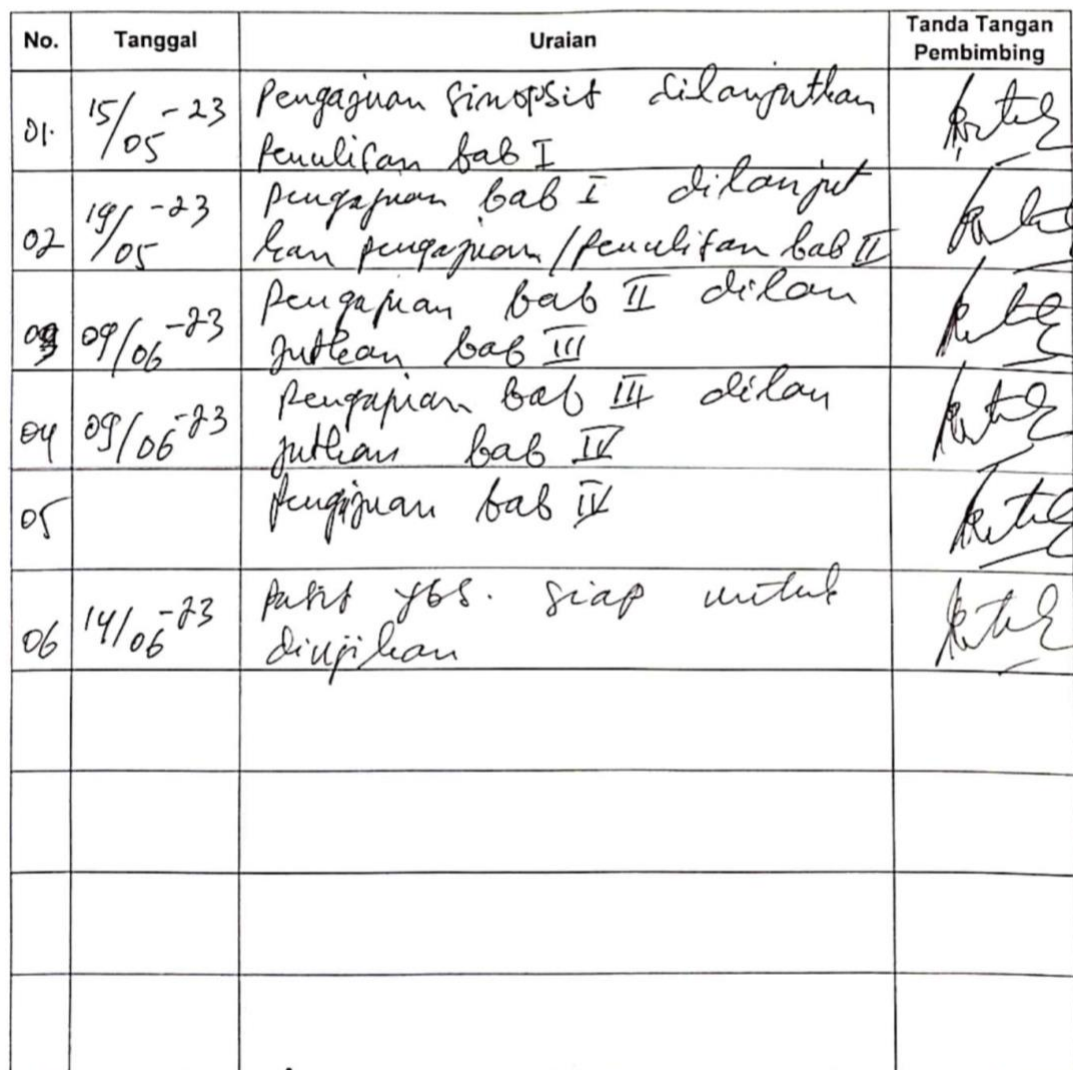 No. Tanggal Uraian Tanda Tangan
Pembimbing
01. 15/05-23 Pengajuan sinopsis dilanjutkan
penulisan bab I
02 19/05-23 pengajuan bab I dilanjut
kan pengajuan/penulisan bab II
03 09/06-23 pengajuan bab II dilan
jutkan bab III
04 09/06-23 pengajuan bab III dilan
jutkan bab IV
05 pengajuan bab IV
06 14/06-23 ybs. siap untuk
diujikan